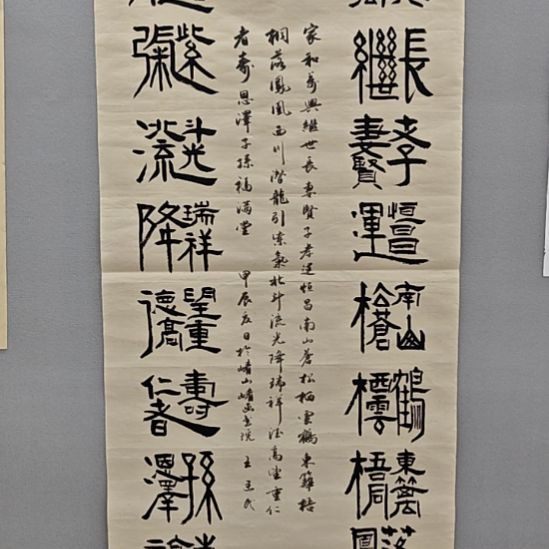 長
孝子
恒昌
南山
鶴
東籬
落
繼世
妻賢
運
蒼松
栖雲
梧桐
鳳
家和萬興繼世長妻賢子孝運恒昌南山蒼松栖雲鶴東籬梧
桐落鳳凰西川潛龍引紫氣北斗流光降瑞祥德高望重仁
者壽恩澤子孫福滿堂 甲辰夏日於 王立民
紫
斗光
瑞祥
望重
壽
孫
流
降
德高
仁者
恩澤